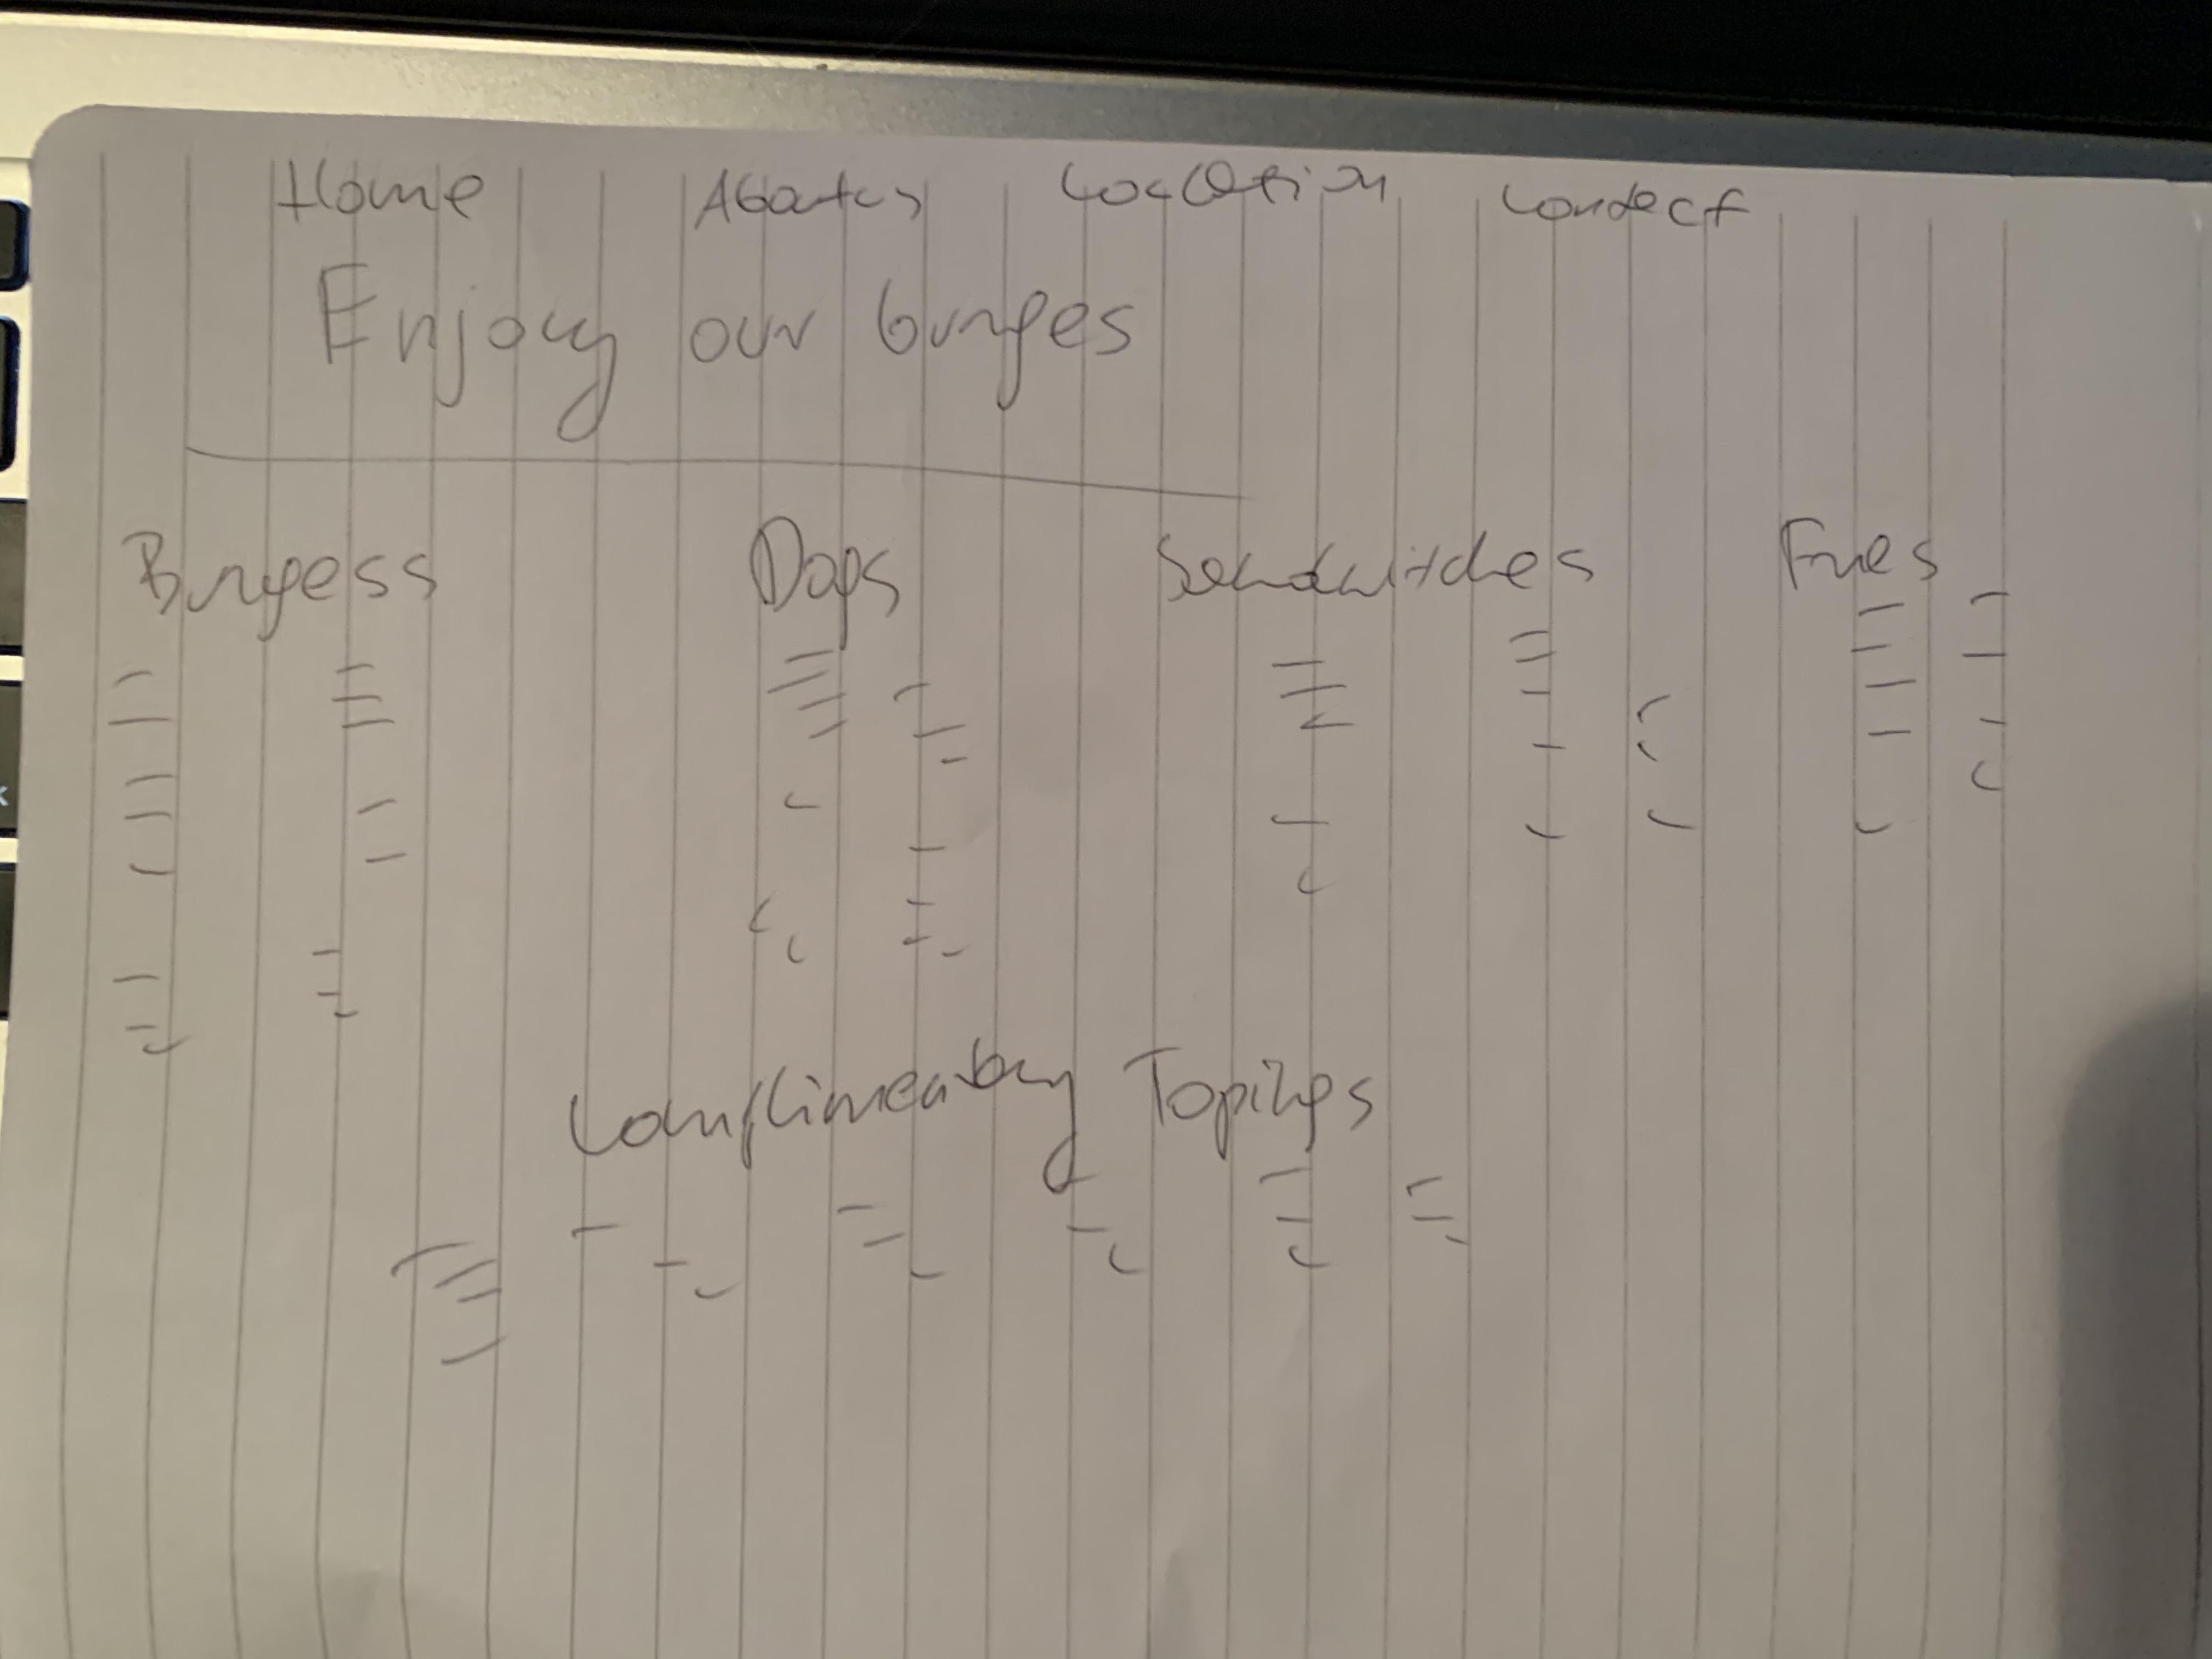 Home Aboutus Location Contact
Enjoy our burges
Burgess Dogs Sandwitches Fries
Complimentary Topings